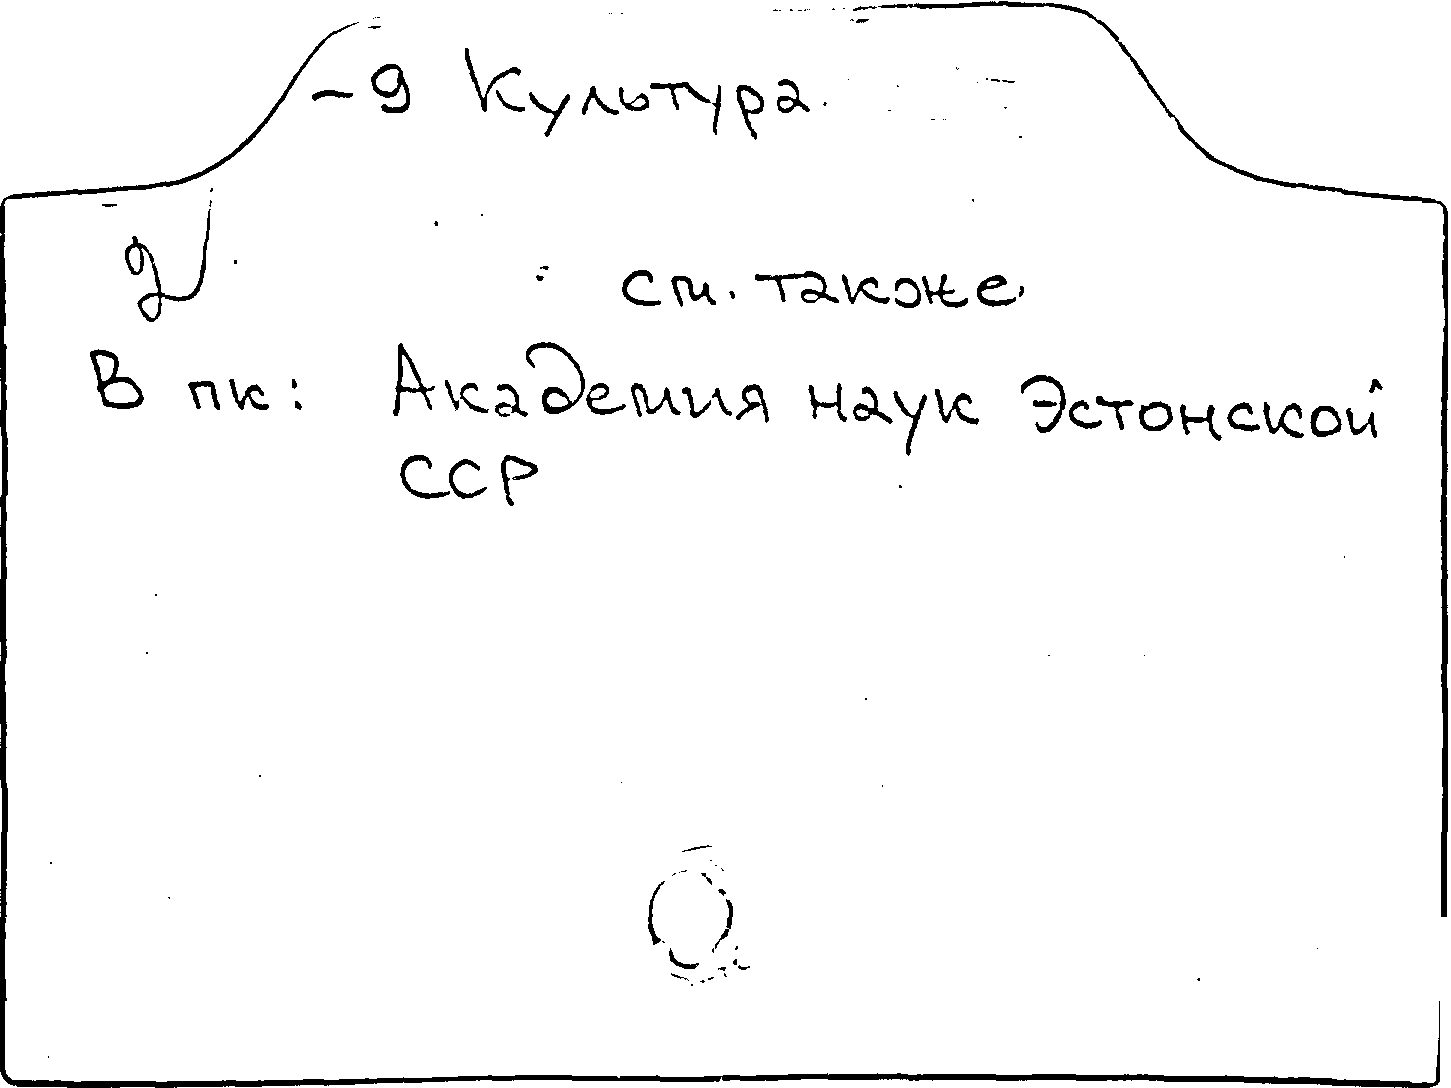 -9 Культура
см. также
В пк: Академия наук Эстонской
ССР